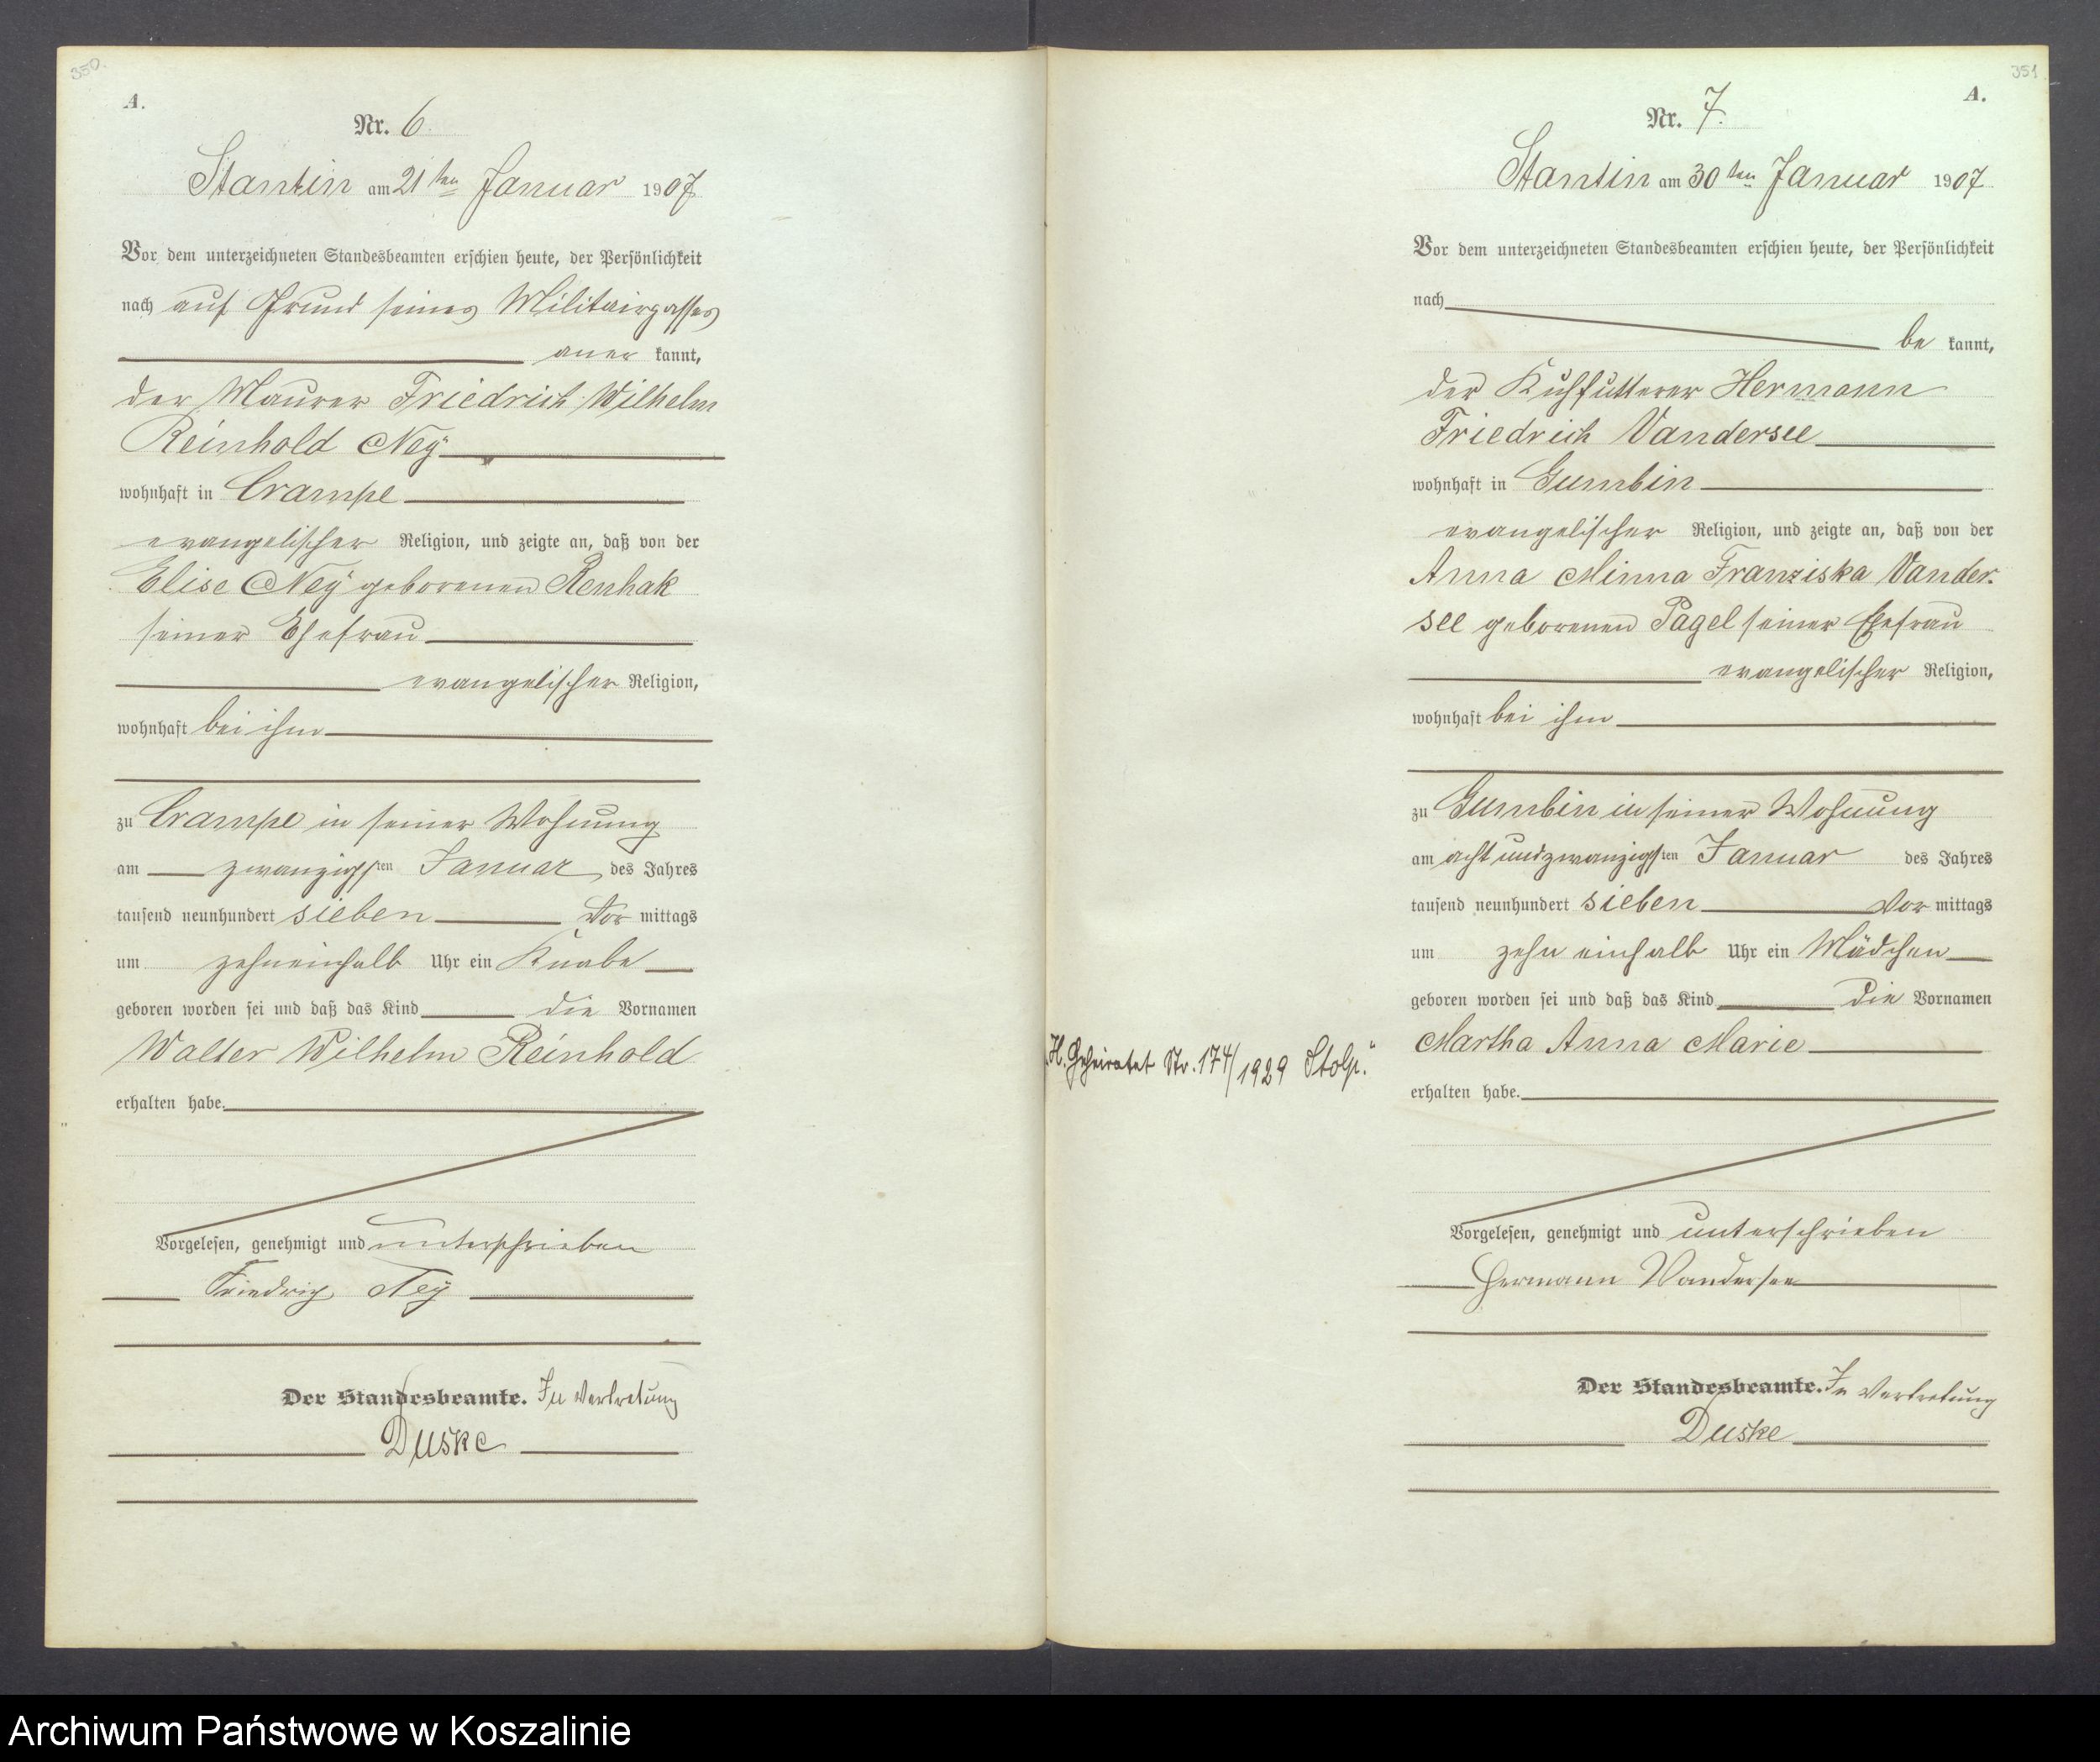 350.
A.
Nr. 6.
Stantin am 21ten Januar 1907
Vor dem unterzeichneten Standesbeamten erschien heute, der Persönlichkeit
nach auf Grund seines Militairpasses
aner kannt,
der Maurer Friedrich Wilhelm
Reinhold Neÿ
wohnhaft in Crampe
evangelischer Religion, und zeigte an, daß von der
Elise Neÿ geborenen Renhak
seiner Ehefrau
evangelischer Religion,
wohnhaft bei ihm
zu Crampe in seiner Wohnung
am zwanzigsten Januar des Jahres
tausend neunhundert sieben Vor mittags
um zehneinhalb Uhr ein Knabe
geboren worden sei und daß das Kind die Vornamen
Walter Wilhelm Reinhold
erhalten habe.
Vorgelesen, genehmigt und unterschrieben
Friedrich Neÿ
Der Standesbeamte. In Vertretung
Duske
351
A.
Nr. 7.
Stantin am 30ten Januar 1907
Vor dem unterzeichneten Standesbeamten erschien heute, der Persönlichkeit
nach
be kannt,
der Kuhfütterer Hermann
Friedrich Vandersee
wohnhaft in Gumbin
evangelischer Religion, und zeigte an, daß von der
Anna Minna Franziska Vander-
see geborenen Pagel seiner Ehefrau
evangelischer Religion,
wohnhaft bei ihm
zu Gumbin in seiner Wohnung
am acht und zwanzigsten Januar des Jahres
tausend neunhundert sieben Vor mittags
um zehn einhalb Uhr ein Mädchen
geboren worden sei und daß das Kind die Vornamen
Martha Anna Marie
erhalten habe.
„H. Geheiratet Nr. 174/1929 Stolp."
Vorgelesen, genehmigt und unterschrieben
Hermann Vandersee
Der Standesbeamte. In Vertretung
Duske
Archiwum Państwowe w Koszalinie